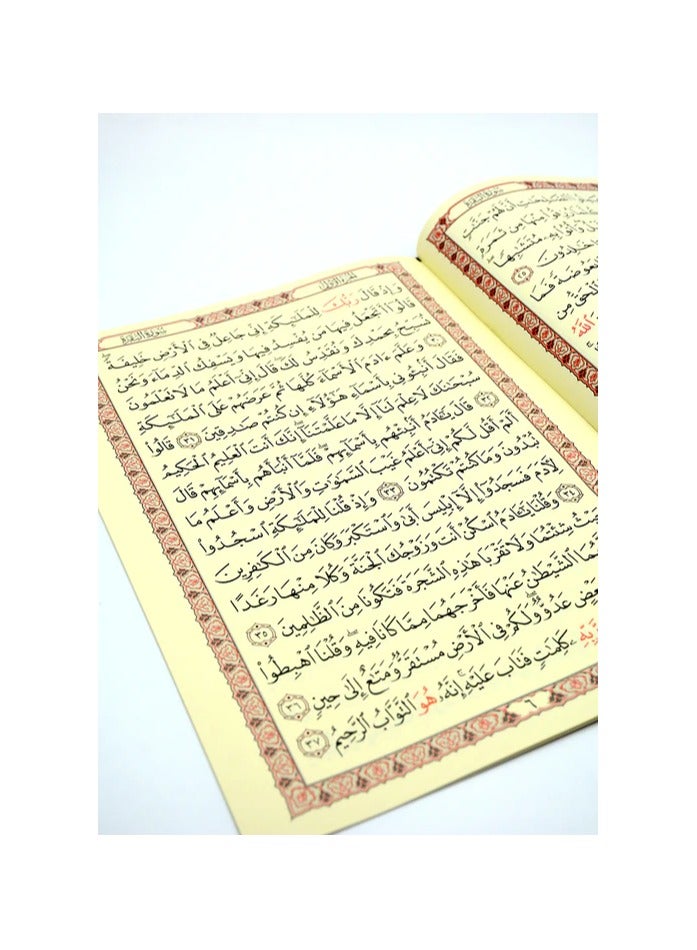 سُورَةُ البَقَرَةِ
الجُزْءُ الأَوَّلُ
وَإِذْ قَالَ رَبُّكَ لِلْمَلَٰٓئِكَةِ إِنِّى جَاعِلٌ فِى ٱلْأَرْضِ خَلِيفَةً ۖ
قَالُوٓا۟ أَتَجْعَلُ فِيهَا مَن يُفْسِدُ فِيهَا وَيَسْفِكُ ٱلدِّمَآءَ وَنَحْنُ
نُسَبِّحُ بِحَمْدِكَ وَنُقَدِّسُ لَكَ ۖ قَالَ إِنِّىٓ أَعْلَمُ مَا لَا تَعْلَمُونَ
٣٠ وَعَلَّمَ ءَادَمَ ٱلْأَسْمَآءَ كُلَّهَا ثُمَّ عَرَضَهُمْ عَلَى ٱلْمَلَٰٓئِكَةِ
فَقَالَ أَنۢبِـُٔونِى بِأَسْمَآءِ هَٰٓؤُلَآءِ إِن كُنتُمْ صَٰدِقِينَ ٣١ قَالُوا۟
سُبْحَٰنَكَ لَا عِلْمَ لَنَآ إِلَّا مَا عَلَّمْتَنَآ ۖ إِنَّكَ أَنتَ ٱلْعَلِيمُ ٱلْحَكِيمُ
٣٢ قَالَ يَٰٓـَٔادَمُ أَنۢبِئْهُم بِأَسْمَآئِهِمْ ۖ فَلَمَّآ أَنۢبَأَهُم بِأَسْمَآئِهِمْ قَالَ
أَلَمْ أَقُل لَّكُمْ إِنِّىٓ أَعْلَمُ غَيْبَ ٱلسَّمَٰوَٰتِ وَٱلْأَرْضِ وَأَعْلَمُ مَا
تُبْدُونَ وَمَا كُنتُمْ تَكْتُمُونَ ٣٣ وَإِذْ قُلْنَا لِلْمَلَٰٓئِكَةِ ٱسْجُدُوا۟
لِـَٔادَمَ فَسَجَدُوٓا۟ إِلَّآ إِبْلِيسَ أَبَىٰ وَٱسْتَكْبَرَ وَكَانَ مِنَ ٱلْكَٰفِرِينَ
٣٤ وَقُلْنَا يَٰٓـَٔادَمُ ٱسْكُنْ أَنتَ وَزَوْجُكَ ٱلْجَنَّةَ وَكُلَا مِنْهَا رَغَدًا
شِئْتُمَا وَلَا تَقْرَبَا هَٰذِهِ ٱلشَّجَرَةَ فَتَكُونَا مِنَ ٱلظَّٰلِمِينَ ٣٥
ٱلشَّيْطَٰنُ عَنْهَا فَأَخْرَجَهُمَا مِمَّا كَانَا فِيهِ ۖ وَقُلْنَا ٱهْبِطُوا۟
عَدُوٌّ ۖ وَلَكُمْ فِى ٱلْأَرْضِ مُسْتَقَرٌّ وَمَتَٰعٌ إِلَىٰ حِينٍ ٣٦
كَلِمَٰتٍ فَتَابَ عَلَيْهِ ۚ إِنَّهُۥ هُوَ ٱلتَّوَّابُ ٱلرَّحِيمُ ٣٧
٦
سُورَةُ البَقَرَةِ
أَنَّ لَهُمْ جَنَّٰتٍ
مِنْهَا مِن ثَمَرَةٍ
وَأُتُوا۟ بِهِۦ مُتَشَٰبِهًا ۖ
خَٰلِدُونَ ٢٥
بَعُوضَةً فَمَا
ٱلْحَقُّ مِن
ٱللَّهُ